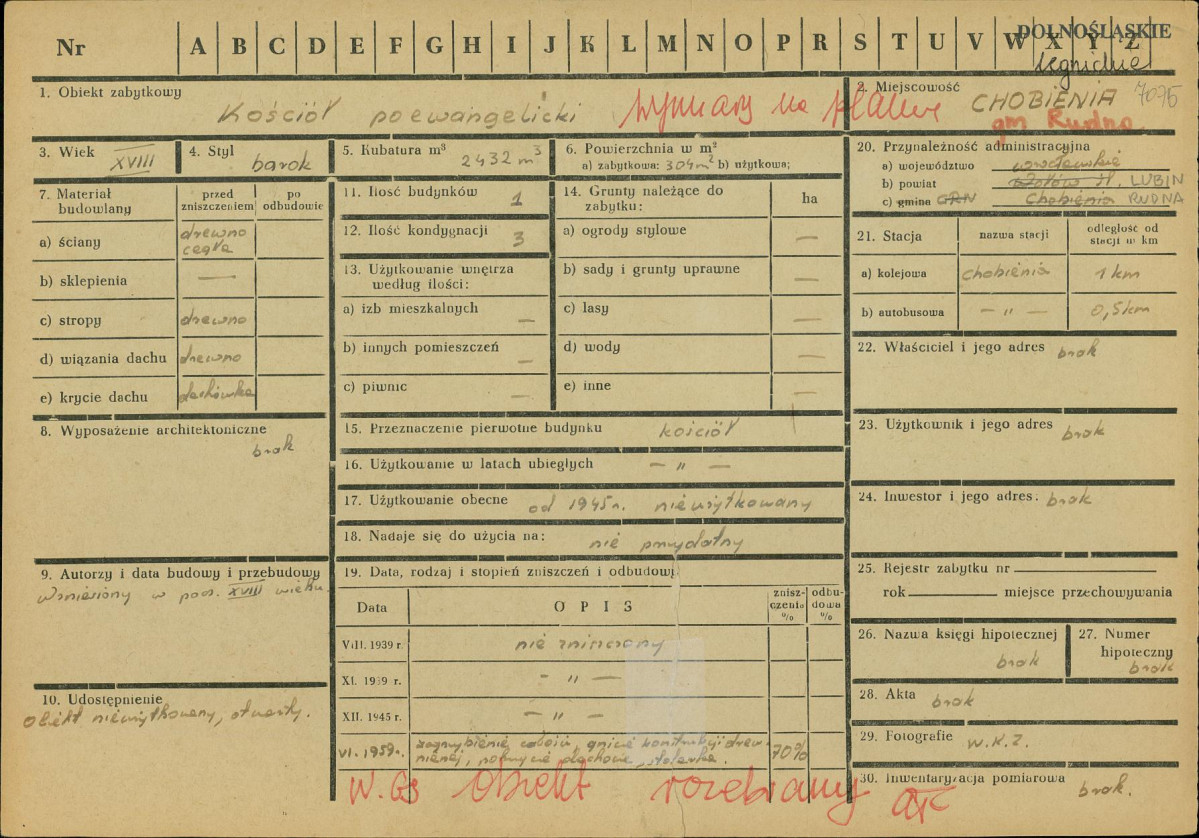 Nr A B C D E F G H I J K L M N O P R S T U V W X Y Z DOLNOŚLĄSKIE
legnickie
1. Obiekt zabytkowy
Kościół poewangelicki
wymiary na planie
2. Miejscowość
CHOBIENIA 7075
gm Rudna
3. Wiek
XVIII
4. Styl
barok
5. Kubatura m³
2432 m³
6. Powierzchnia w m²
a) zabytkowa: 304m² b) użytkowa;
7. Materiał budowlany
przed zniszczeniem
po odbudowie
a) ściany drewno cegła
b) sklepienia —
c) stropy drewno
d) wiązania dachu drewno
e) krycie dachu dachówka
8. Wyposażenie architektoniczne
brak
9. Autorzy i data budowy i przebudowy
Wzniesiony w poł. XVIII wieku.
10. Udostępnienie
Obiekt nieużytkowany, otwarty.
11. Ilość budynków 1
12. Ilość kondygnacji 3
13. Użytkowanie wnętrza
według ilości:
a) izb mieszkalnych —
b) innych pomieszczeń —
c) piwnic —
14. Grunty należące do
zabytku: ha
a) ogrody stylowe —
b) sady i grunty uprawne —
c) lasy —
d) wody —
e) inne —
15. Przeznaczenie pierwotne budynku kościół
16. Użytkowanie w latach ubiegłych — „ —
17. Użytkowanie obecne od 1945 r. nieużytkowany
18. Nadaje się do użycia na: nie przydatny
19. Data, rodzaj i stopień zniszczeń i odbudowy:
Data OPIS zniszczenia % odbudowa %
VIII. 1939 r. nie zniszczony
XI. 1939 r. — „ —
XII. 1945 r. — „ —
VI. 1959 r. zagrzybienie całości, gnicie konstrukcji drew-
nianej, pokrycie dachowe, stolarka. 70%
W. 63 obiekt rozebrany
20. Przynależność administracyjna
a) województwo wrocławskie
b) powiat LUBIN
c) gmina GRN Chobienia RUDNA
21. Stacja nazwa stacji odległość od stacji w km
a) kolejowa chobienia 1 km
b) autobusowa — „ — 0,5 km
22. Właściciel i jego adres brak
23. Użytkownik i jego adres brak
24. Inwestor i jego adres. brak
25. Rejestr zabytku nr
rok miejsce przechowywania
26. Nazwa księgi hipotecznej
brak
27. Numer hipoteczny
brak
28. Akta brak
29. Fotografie W.K.Z.
30. Inwentaryzacja pomiarowa brak.